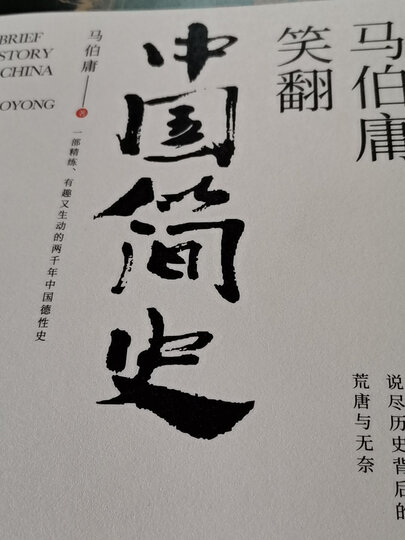 马伯庸
笑翻
中国简史
马伯庸
一部精练、有趣又生动的两千年中国德性史
说尽历史背后的
荒唐与无奈
BRIEF
STORY
CHINA
OYONG